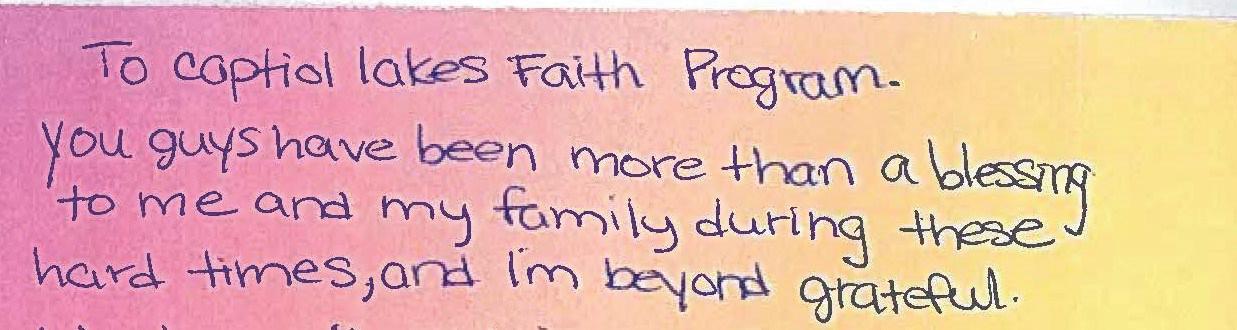 To captiol lakes Faith Program.
you guys have been more than a blessing
to me and my family during these
hard times, and I'm beyond grateful.